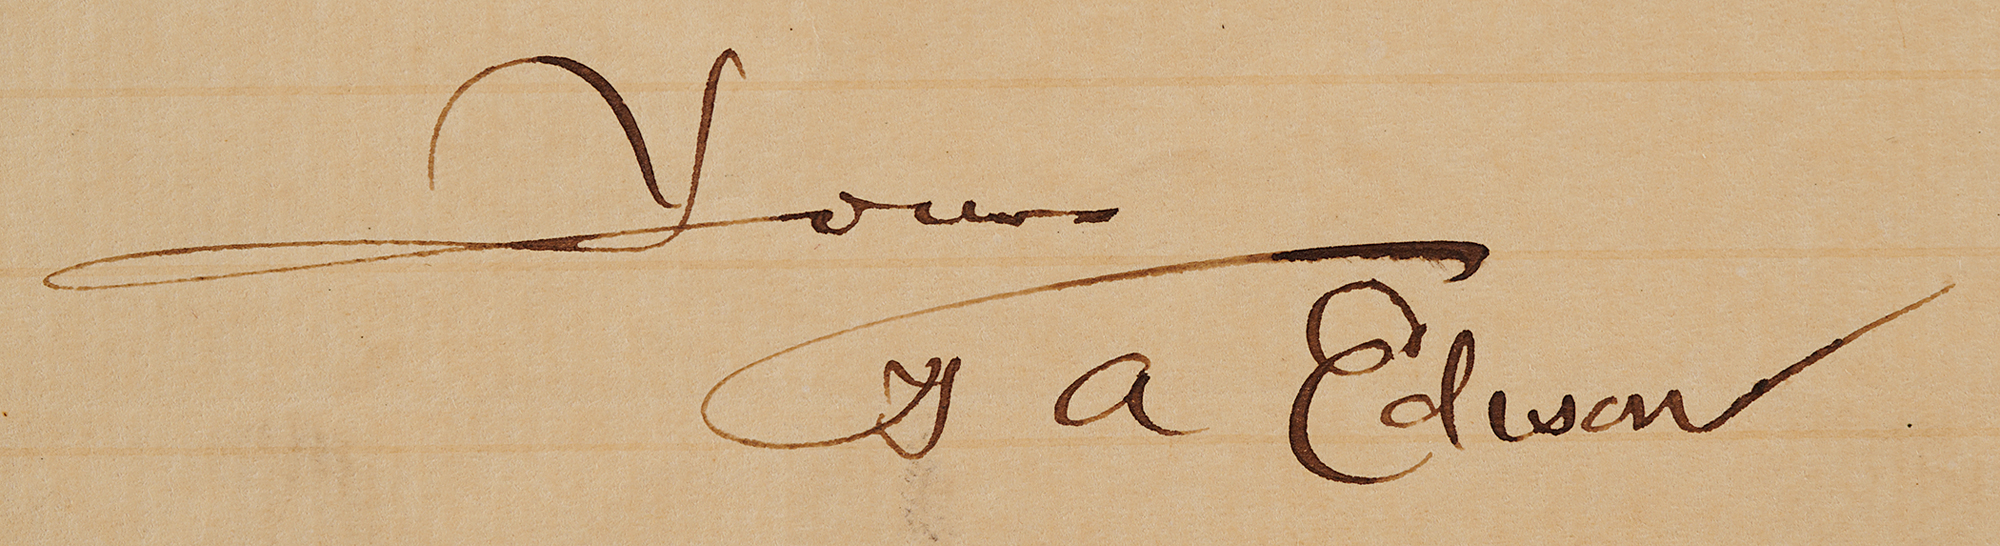 Yours
T A Edison